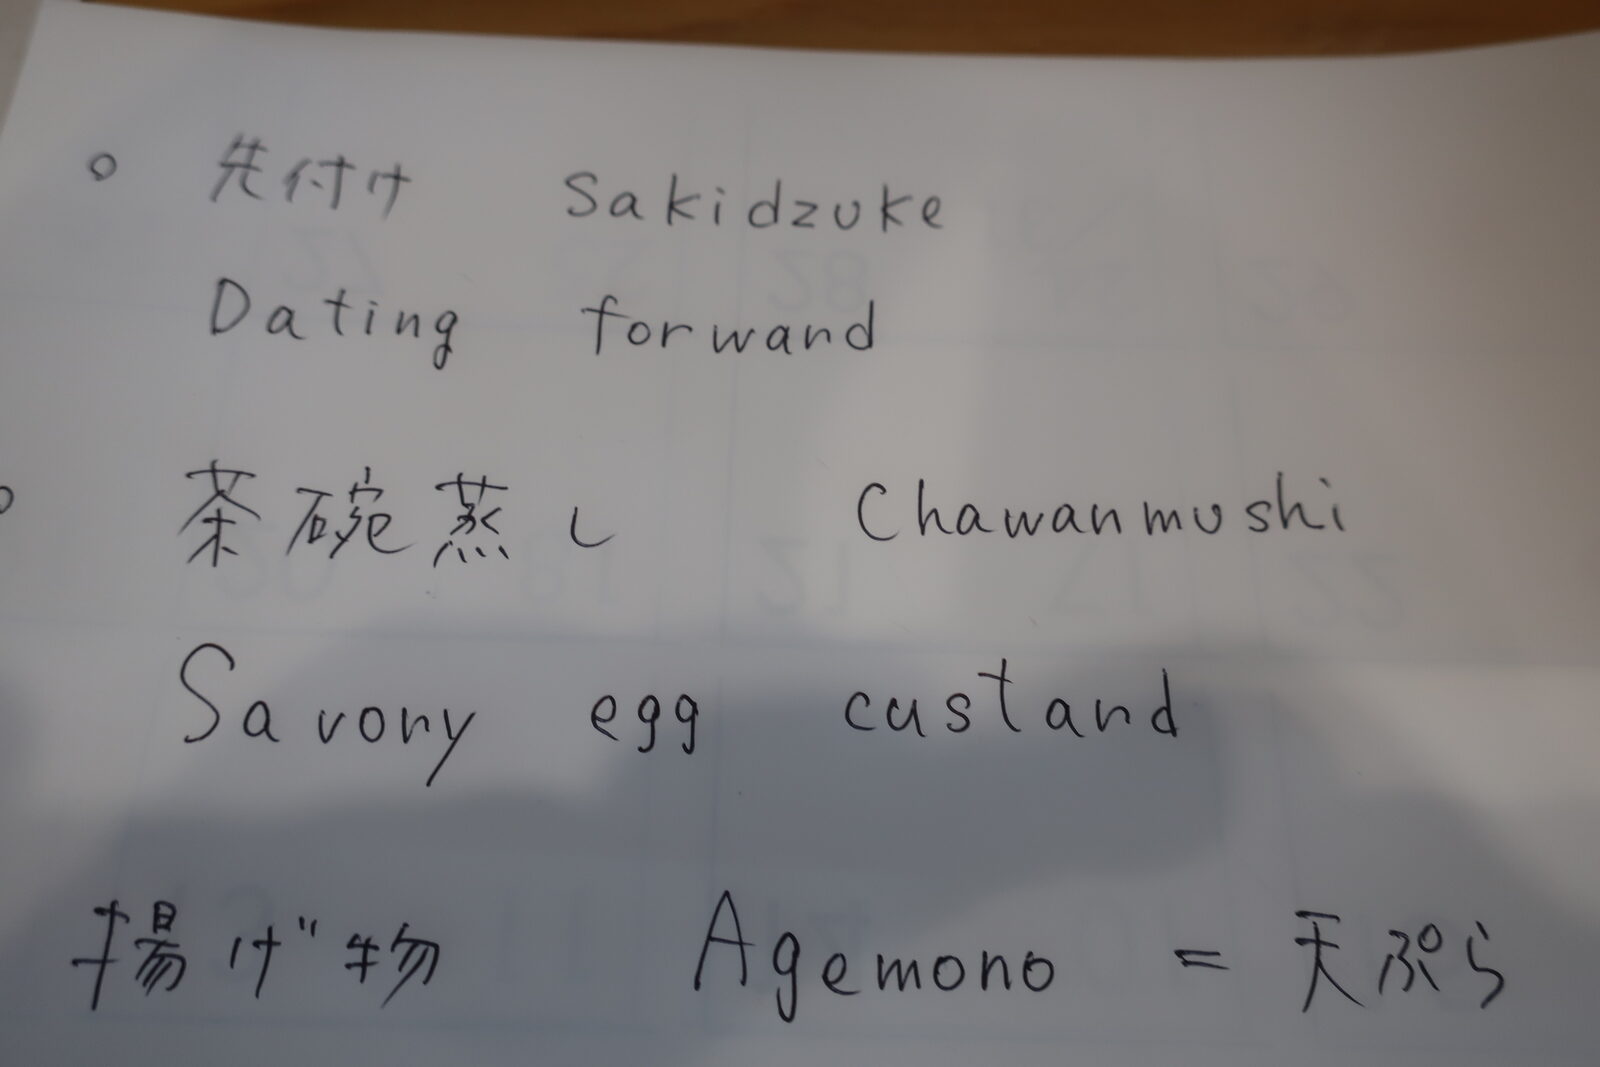 ○ 先付け Sakidzuke
Dating forward
○ 茶碗蒸し Chawanmushi
Savory egg custard
揚げ物 Agemono = 天ぷら